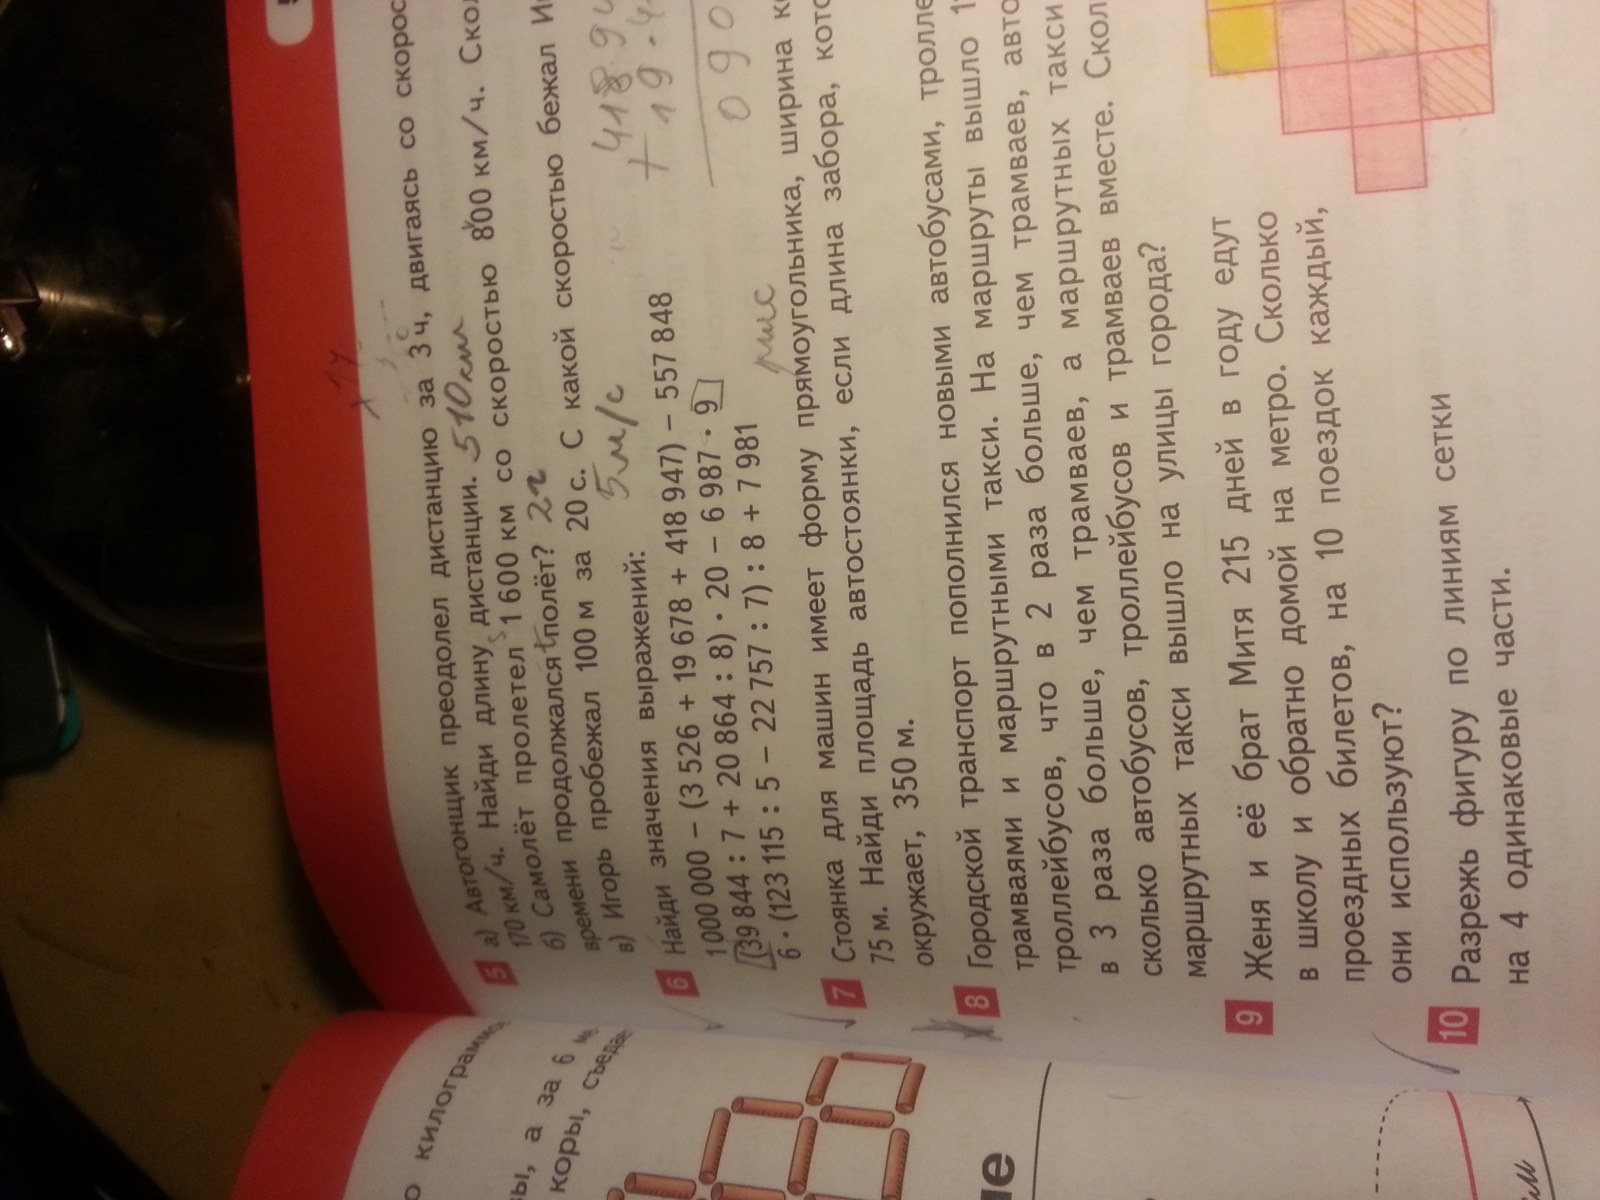 5 а) Автогонщик преодолел дистанцию за 3 ч, двигаясь со
170 км/ч. Найди длину дистанции. 510 км
б) Самолёт пролетел 1 600 км со скоростью 800 км/ч.
времени продолжался полёт? 2ч
в) Игорь пробежал 100 м за 20 с. С какой скоростью бежал
5 м/с
6 Найди значения выражений:
1 000 000 – (3 526 + 19 678 + 418 947) – 557 848
(39 844 : 7 + 20 864 : 8) · 20 – 6 987 · 9
6 · (123 115 : 5 – 22 757 : 7) : 8 + 7 981
7 Стоянка для машин имеет форму прямоугольника, ширина
75 м. Найди площадь автостоянки, если длина забора,
окружает, 350 м.
8 Городской транспорт пополнился новыми автобусами,
трамваями и маршрутными такси. На маршруты вышло
троллейбусов, что в 2 раза больше, чем трамваев,
в 3 раза больше, чем трамваев, а маршрутных такси
сколько автобусов, троллейбусов и трамваев вместе.
маршрутных такси вышло на улицы города?
9 Женя и её брат Митя 215 дней в году едут
в школу и обратно домой на метро. Сколько
проездных билетов, на 10 поездок каждый,
они используют?
10 Разрежь фигуру по линиям сетки
на 4 одинаковые части.
а за 6
коры,